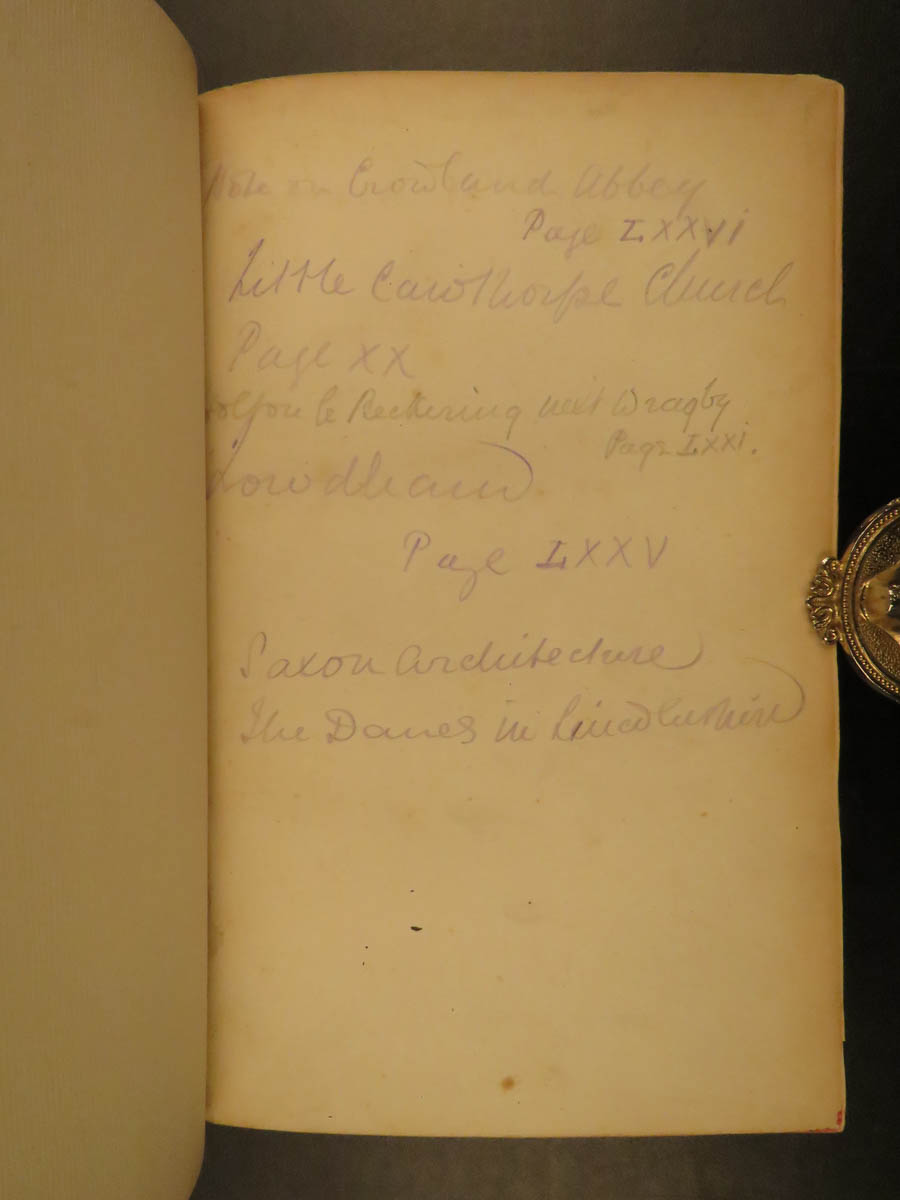 Note on Crowland Abbey
Page LXXVI
Little Cawthorpe Church
Page XX
Beckering next Wragby
Page LXXI.
Lowdham
Page LXXV
Saxon Architecture
The Danes in Lincolnshire